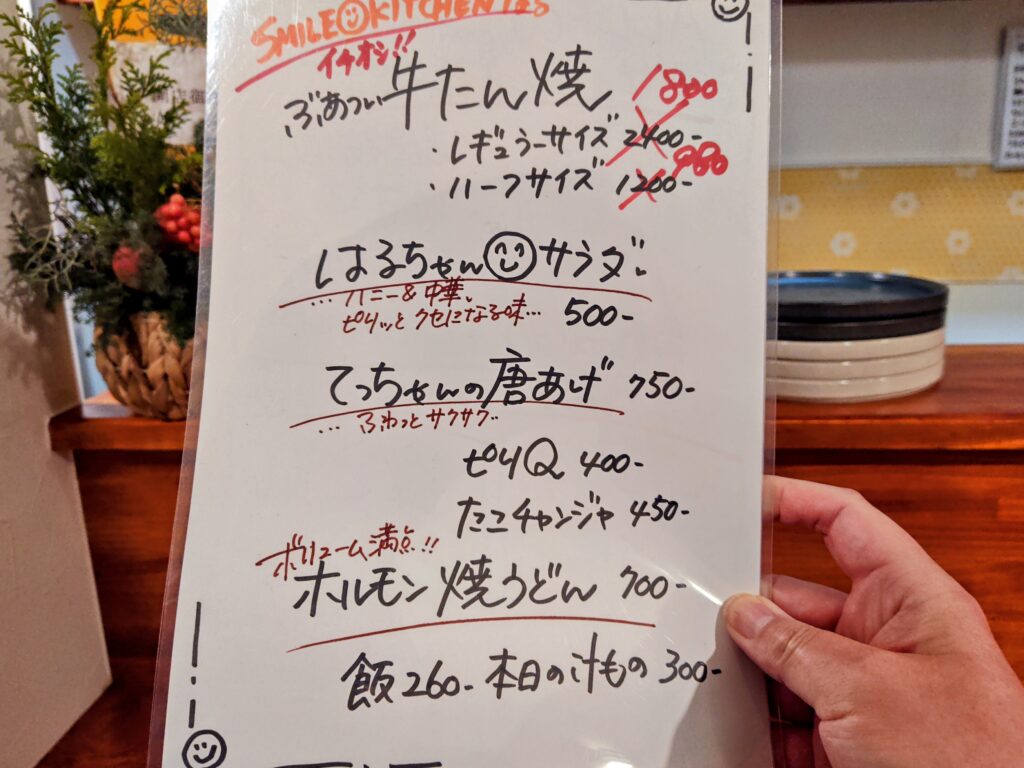 SMILE KITCHEN
イチオシ!!
ぶあつい牛たん焼 1800
・レギュラーサイズ 2400-
・ハーフサイズ 1200- 980
はるちゃんサラダ
...ハニー&中華。
ピリッとクセになる味... 500-
てっちゃんの唐あげ 750-
...ふわっとサクサク
ピリQ 400-
たこチャンジャ 450-
ボリューム満点!!
ホルモン焼うどん 700-
飯 260- 本日の汁もの 300-